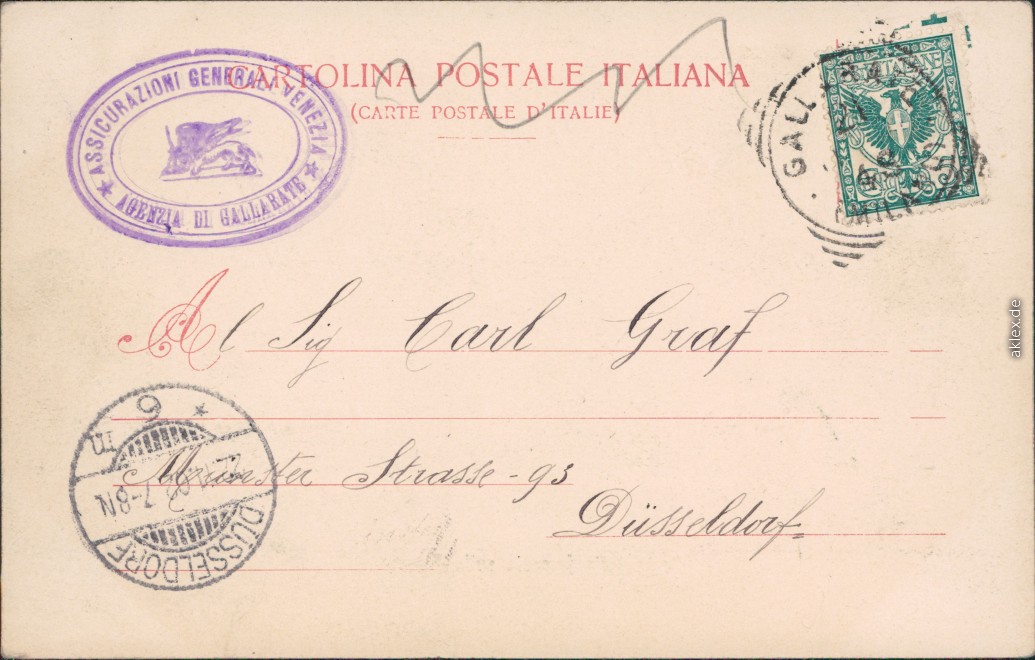 CARTOLINA POSTALE ITALIANA
(CARTE POSTALE D'ITALIE)
★ ASSICURAZIONI GENERALI VENEZIA ★
AGENZIA DI GALLARATE
Al Sig Carl Graf
Münster Strasse - 93
Düsseldorf
DÜSSELDORF
7-8N.
6
m
aklex.de